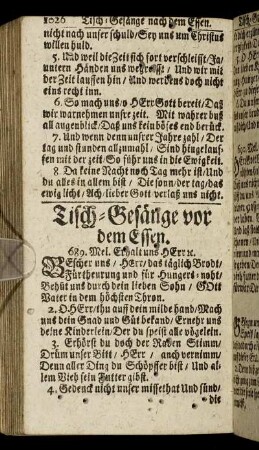 1026 Tisch-Gesänge nach dem Essen.
nicht nach unser schuld/ Sey uns um Christus
willen huld.
5. Und weil die Zeit sich fort verschleisst/ Ja/
untern Händen uns wegreisst/ Und wir mit
der Zeit lauffen hin/ Und werckens doch nicht
eins recht inn.
6. So mach uns/ o HErr Gott bereit/ Daß
wir warnehmen unsre zeit. Mit wahrer buß
all augenblick/ Daß uns kein böses end berück.
7. Und wenn denn unsrer Jahre zahl/ Der
tag und stunden allzumahl/ Sind hingelauf-
fen mit der zeit/ So führ uns in die Ewigkeit.
8 Da keine Nacht noch Tag mehr ist/ Und
du alles in allem bist/ Die sonn/ der tag/ das
ewig licht/ Ach/ lieber Gott verlaß uns nicht.
Tisch-Gesänge vor
dem Essen.
689. Mel. Erhalt uns HErr ꝛc.
BEscher uns/ HErr/ das täglich Brodt/
Für theurung und für Hungers-noht/
Behüt uns durch dein lieben Sohn/ GOtt
Vater in dem höchsten Thron.
2. O HErr/ thu auf dein milde hand/ Mach
uns dein Gnad und Güt bekand/ Ernehr uns
deine Kinderlein/ Der du speist alle vögelein.
3. Erhörst du doch der Raben Stimm/
Drüm unser Bitt/ HErr/ auch vernimm/
Denn aller Ding du Schöpffer bist/ Und al-
lem Vieh sein Futter gibst.
4. Gedenck nicht unser missethat Und sünd/
die